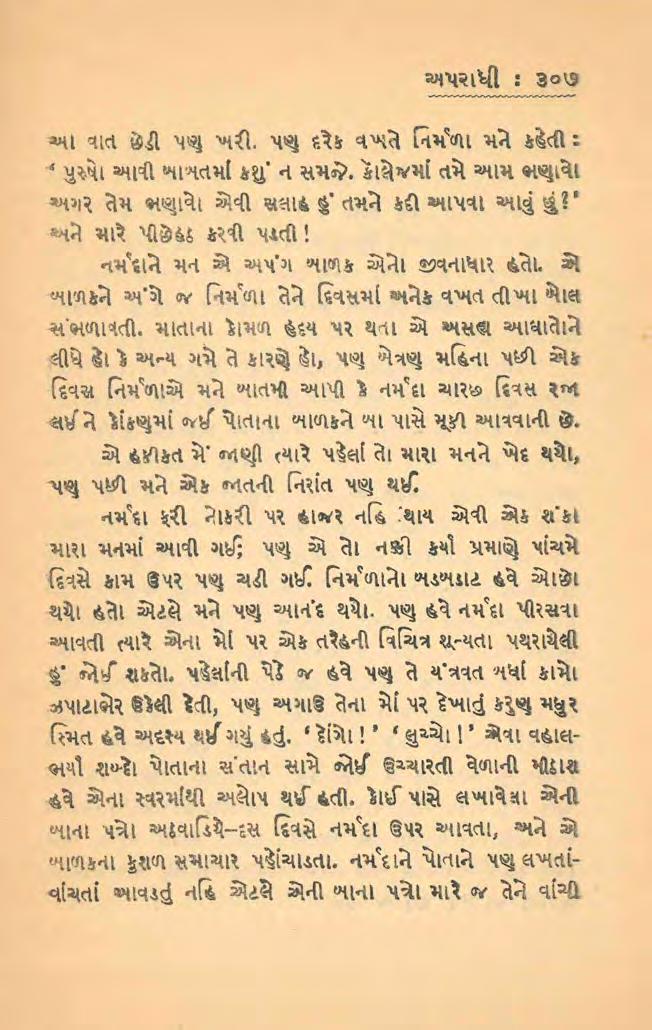 અપરાધી : ૩૦૭
આ વાત છેડી પણ ખરી. પણ દરેક વખતે નિર્મળા મને કહેતી :
‘ પુરુષો આવી બાબતમાં કશું ન સમજે. કૉલેજમાં તમે આમ ભણાવો
અગર તેમ ભણાવો એવી સલાહ હું તમને કદી આપવા આવું છું?’
અને મારે પીછેહઠ કરવી પડતી !
નર્મદાને મન એ અપંગ બાળક એનો જીવનાધાર હતો. એ
બાળકને અંગે જ નિર્મળા તેને દિવસમાં અનેક વખત તીખા બોલ
સંભળાવતી. માતાના કોમળ હૃદય પર થતા એ અસહ્ય આઘાતોને
લીધે હો કે અન્ય ગમે તે કારણે હો, પણ બેત્રણ મહિના પછી એક
દિવસ નિર્મળાએ મને બાતમી આપી કે નર્મદા ચારછ દિવસ રજા
લઈને કોંકણમાં જઈ પોતાના બાળકને બા પાસે મૂકી આવવાની છે.
એ હકીકત મેં જાણી ત્યારે પહેલાં તો મારા મનને ખેદ થયો,
પણ પછી મને એક જાતની નિરાંત પણ થઈ.
નર્મદા ફરી નોકરી પર હાજર નહિ થાય એવી એક શંકા
મારા મનમાં આવી ગઈ; પણ એ તો નક્કી કર્યા પ્રમાણે પાંચમે
દિવસે કામ ઉપર પણ ચડી ગઈ. નિર્મળાનો બડબડાટ હવે ઓછો
થયો હતો એટલે મને પણ આનંદ થયો. પણ હવે નર્મદા પીરસવા
આવતી ત્યારે એના મોં પર એક તરેહની વિચિત્ર શૂન્યતા પથરાયેલી
હું જોઈ શકતો. પહેલાંની પેઠે જ હવે પણ તે યંત્રવત બધાં કામો
ઝપાટાભેર ઉકેલી દેતી, પણ અગાઉ તેના મોં પર દેખાતું કરુણ મધુર
સ્મિત હવે અદૃશ્ય થઈ ગયું હતું. ‘ દોંગો ! ’ ‘ લુચ્ચો ! ’ એવા વહાલ-
ભર્યા શબ્દો પોતાના સંતાન સામે જોઈ ઉચ્ચારતી વેળાની મીઠાશ
હવે એના સ્વરમાંથી અલોપ થઈ હતી. કોઈ પાસે લખાવેલા એની
બાના પત્રો અઠવાડિયે–દસ દિવસે નર્મદા ઉપર આવતા, અને એ
બાળકના કુશળ સમાચાર પહોંચાડતા. નર્મદાને પોતાને પણ લખતાં-
વાંચતાં આવડતું નહિ એટલે એની બાના પત્રો મારે જ તેને વાંચી